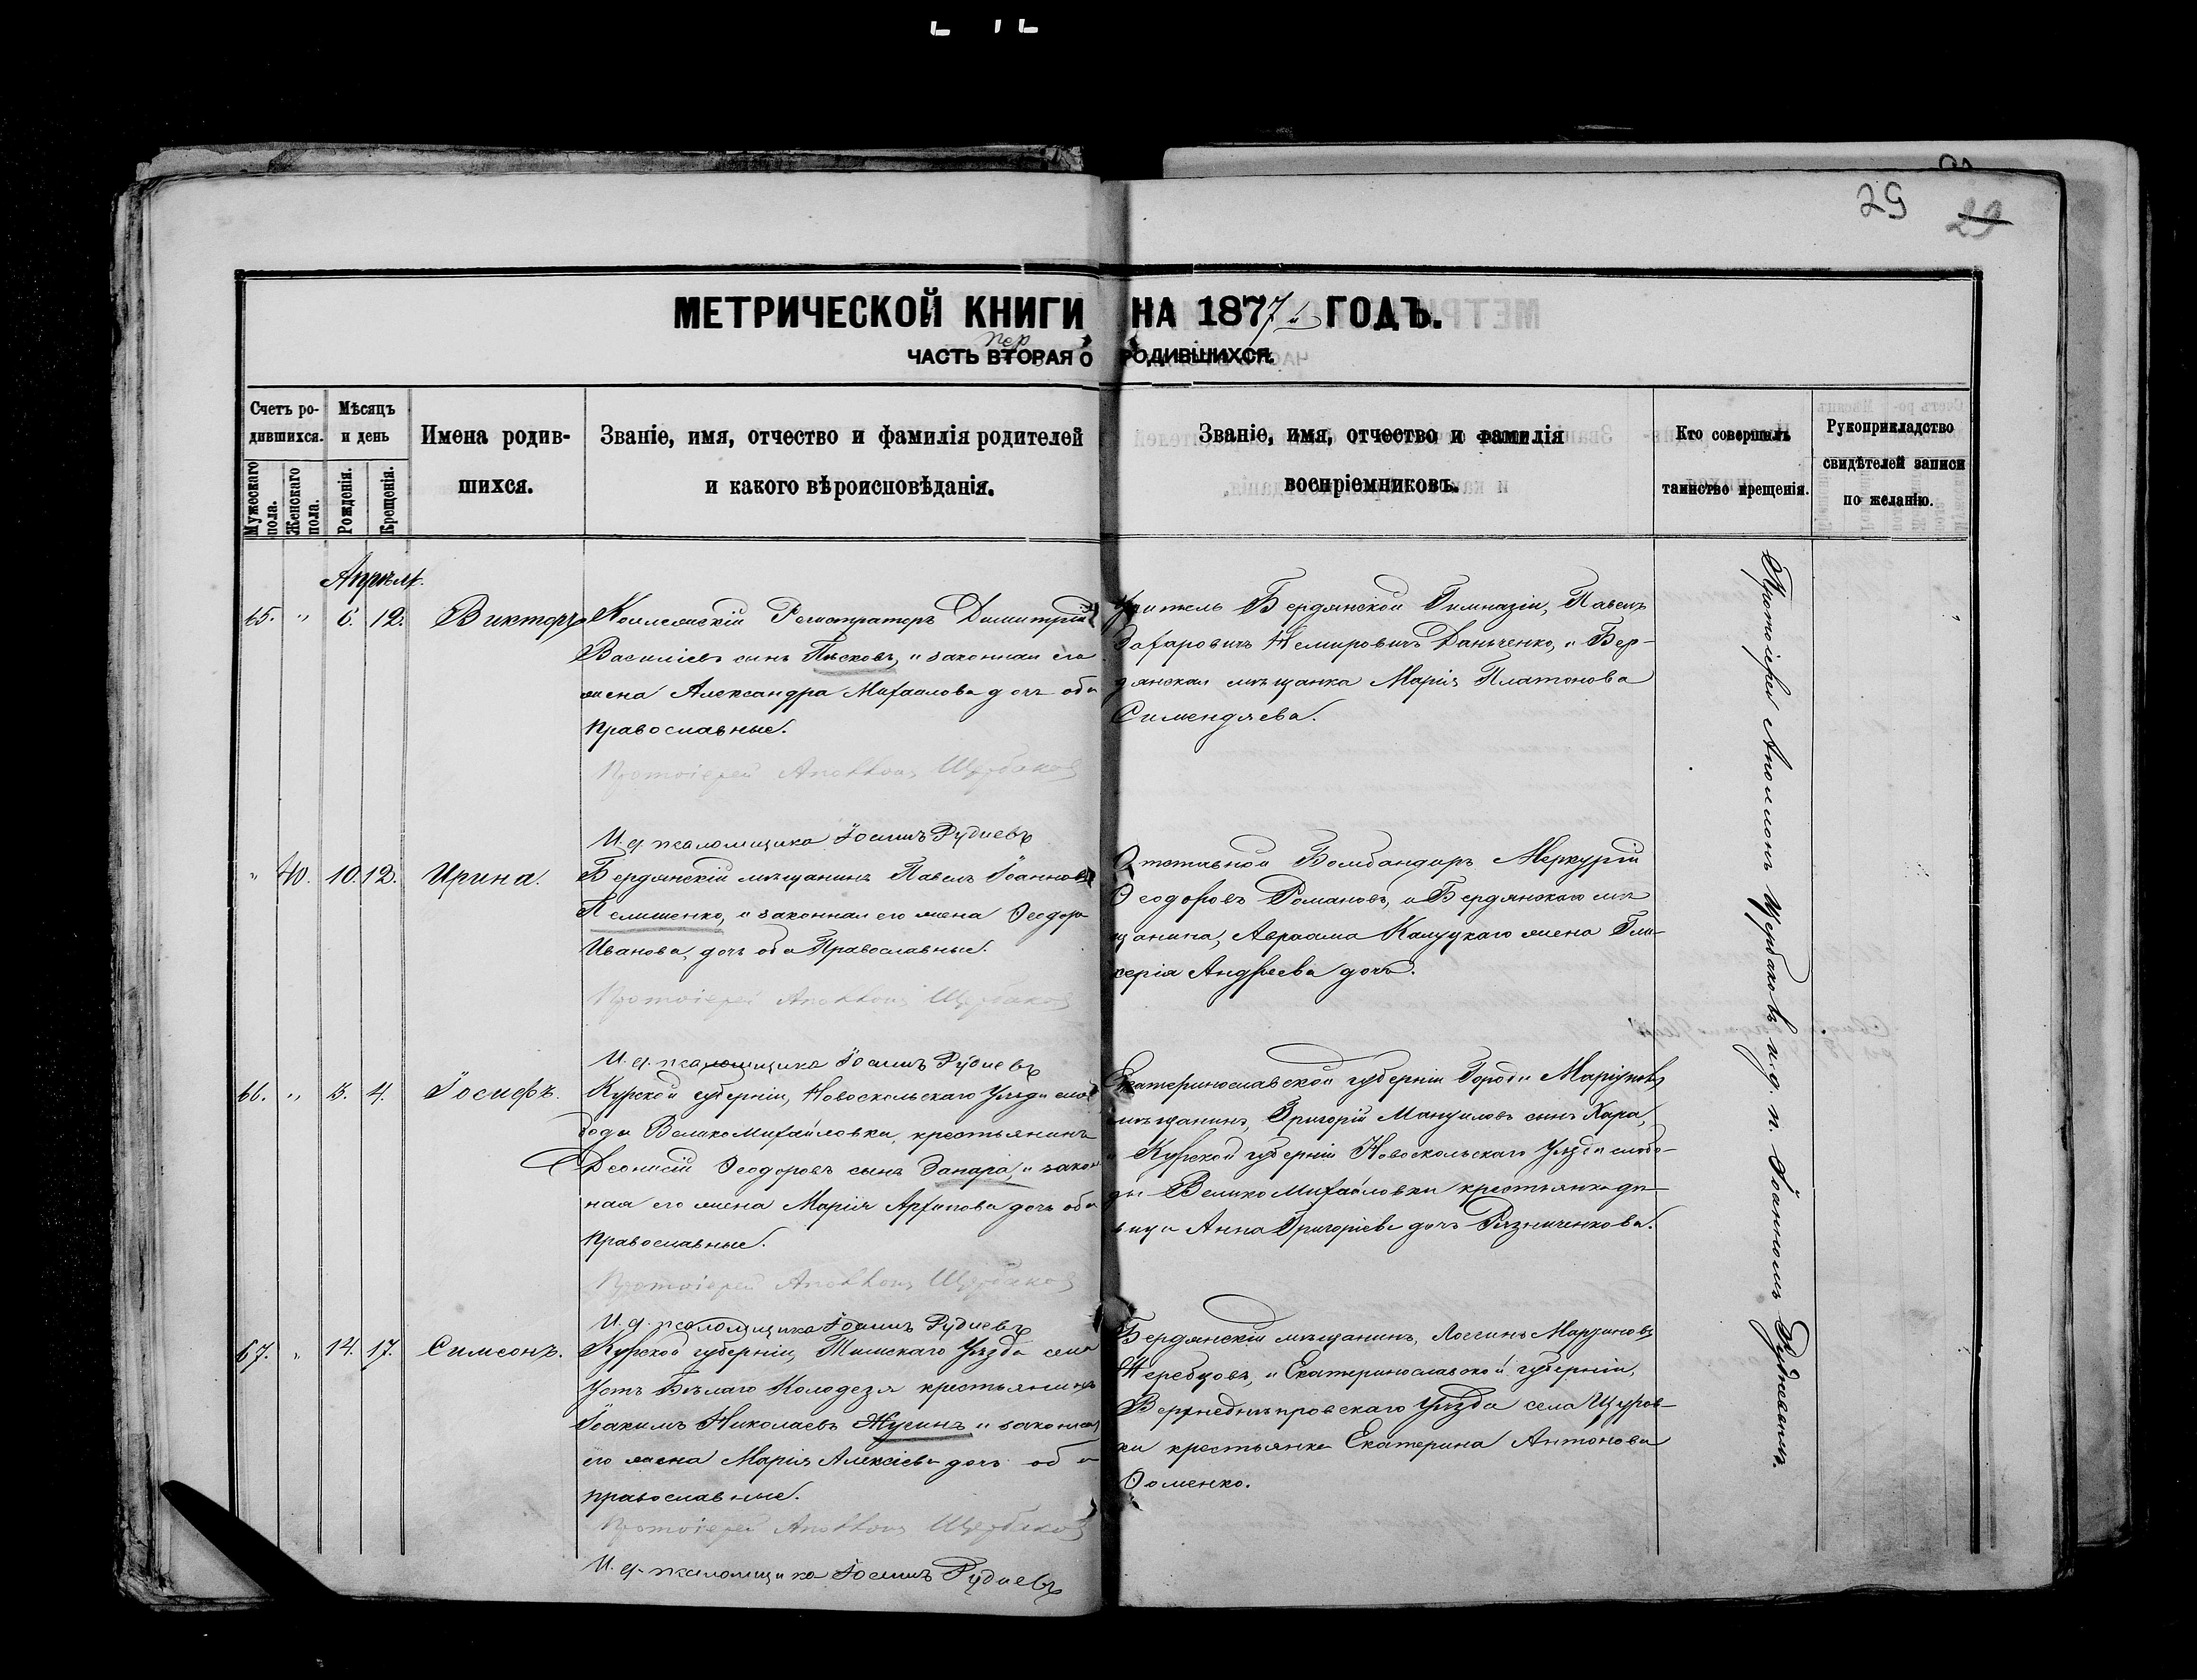 29 29
МЕТРИЧЕСКОЙ КНИГИ НА 1877й ГОДЪ.
пер
ЧАСТЬ ВТОРАЯ О РОДИВШИХСЯ.
Счетъ ро-
дившихся.
Мужескаго пола.
Женскаго пола.
Мѣсяцъ
и день
Рожденія.
Крещенія.
Имена родив-
шихся.
Званіе, имя, отчество и фамилія родителей
и какого вѣроисповѣданія.
Званіе, имя, отчество и фамилія
воспріемниковъ.
Кто совершалъ
таинство крещенія.
Рукоприкладство
свидѣтелей записи
по желанію.
Апрѣль.
65. " 6. 12. Викторъ
Коллежскій Регистраторъ Димитрій
Василіевъ сынъ Пѣсковъ, и законная его
жена Александра Михаилова дочь оба
православные.
Протоіерей Аполлонъ Щербаковъ
И. д. псаломщика Іоаннъ Рудневъ
Учитель Бердянской Гимназіи, Павелъ
Захаровичъ Немировичъ Данченко, и Бер-
дянская мѣщанка Марія Платонова
Симендяева.
" 40. 10. 12. Ирина.
Бердянскій мѣщанинъ Павелъ Іоанновъ
Пелишенко, и законная его жена Ѳеодора
Иванова, дочь оба Православные.
Протоіерей Аполлонъ Щербаковъ
И. д. псаломщика Іоаннъ Рудневъ
Отставной Бомбандиръ Меркурій
Ѳеодоровъ Романовъ, и Бердянскаго мѣ
щанина, Авраама Калуцкаго жена Гли-
керія Андреева дочь.
66. " 3. 4. Іосифъ.
Курской губерніи, Новоскольскаго Уѣзда сло
боды ВеликоМихайловки, крестьянинъ
Деонисій Ѳеодоровъ сынъ Запара, и закон
ная его жена Марія Архипова дочь оба
православные.
Протоіерей Аполлонъ Щербаковъ
И. д. псаломщика Іоаннъ Рудневъ
Екатеринославской губерніи Города Маріуполь
мѣщанинъ, Григорій Мануиловъ сынъ Хара,
и Курской губерніи Новоскольскаго Уѣзда слобо-
ды ВеликоМихайловки крестьянка дѣ-
вица Анна Григоріева дочь Рѣзниченкова.
67. " 14. 17. Симеонъ.
Курской губерніи, Тимскаго Уѣзда села
Усть Бѣлаго Колодезя крестьянинъ
Іоакимъ Николаевъ Жусинъ и законная
его жена Марія Алексіева дочь оба
православные.
Протоіерей Аполлонъ Щербаковъ
И. д. псаломщика Іоаннъ Рудневъ
Бердянскій мѣщанинъ, Логгинъ Мартиновъ
Жеребцовъ, и Екатеринославской губерніи,
Верхнеднѣпровскаго Уѣзда села Щуров-
ки крестьянка Екатерина Антонова
Ѳоменко.
Протоіерей Аполлонъ Щербаковъ и. д. п. Іоанномъ Рудневымъ.